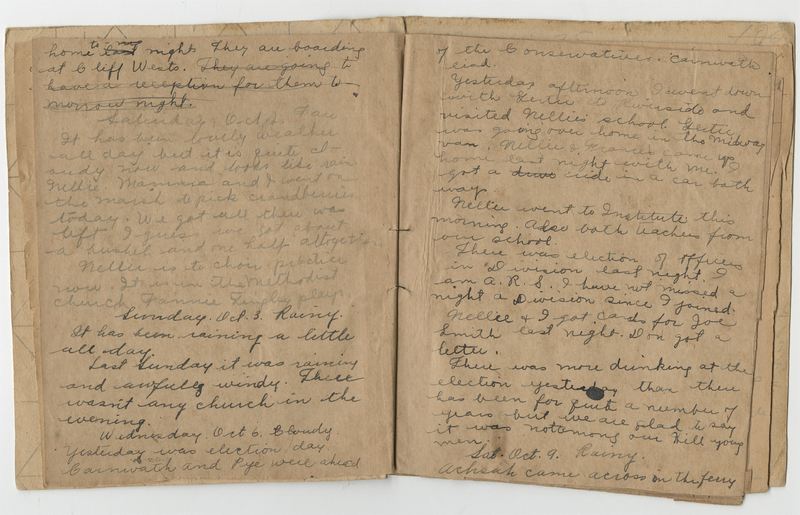 home to last night They are boarding
at Cliff Wests. They are going to
have a reception for them to-
morrow night.
Saturday, Oct. 2. Fair
It has been lovely weather
all day but it is quite cl-
oudy now and looks like rain
Nellie, Mamma and I went on
the marsh to pick cranberries
today. We got all there was
left I guess we got about
a bushel and one half altogether.
Nellie is to choir practice
now. It is in the Methodist
church Fannie plays.
Sunday. Oct. 3. Rainy.
It has been raining a little
all day.
Last Sunday it was raining
and awfully windy. There
wasn't any church in the
evening.
Wednesday. Oct 6. Cloudy
Yesterday was election day
Carnwath and Pye were ahead
of the Conservatives. Carnwath
Yesterday afternoon I went down
with Gertie to Riverside and
visited Nellie's school. Gertie
was going over home in the Midway
van. Nellie & came up
home last night with me. I
got a drive ride in a car both
way.
Nellie went to Institute this
morning. Also both teachers from
our school.
There was election of officers
in Division last night. I
am A.R.S. I have not missed a
night a Division since I joined.
Nellie & I got cards for Joe
Smith last night. Don got a
letter.
There was more drinking at the
election yesterday than there
has been for quit a number of
years but we are glad to say
it was not among our Hill young
men.
Sat. Oct. 9. Rainy.
Achsah came across on the ferry